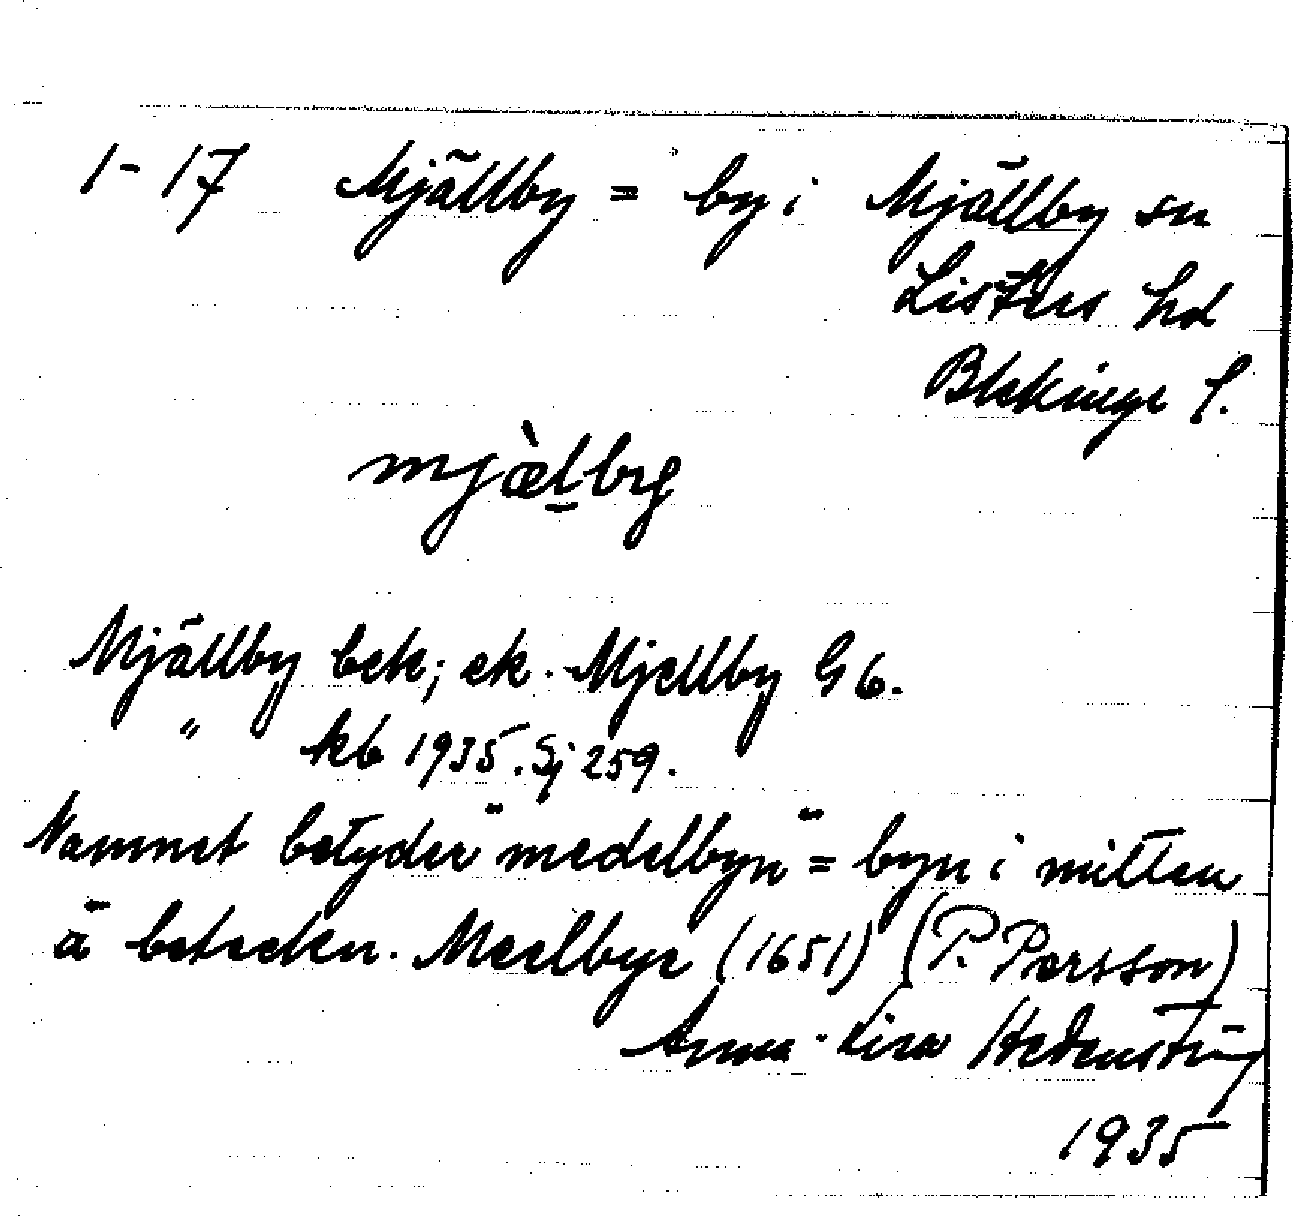 1-17 Mjällby = by i Mjällby sn
Listers hd
Blekinge l.
mjæ̀l̠by
Mjällby bek; ek. Mjellby G6.
" kb 1935. Sj 259.
Namnet betyder "medelbyn" = byn i mitten
ä beteckn. Meelbye (1651) (P. Persson)
Anna-Lisa Hedenström
1935